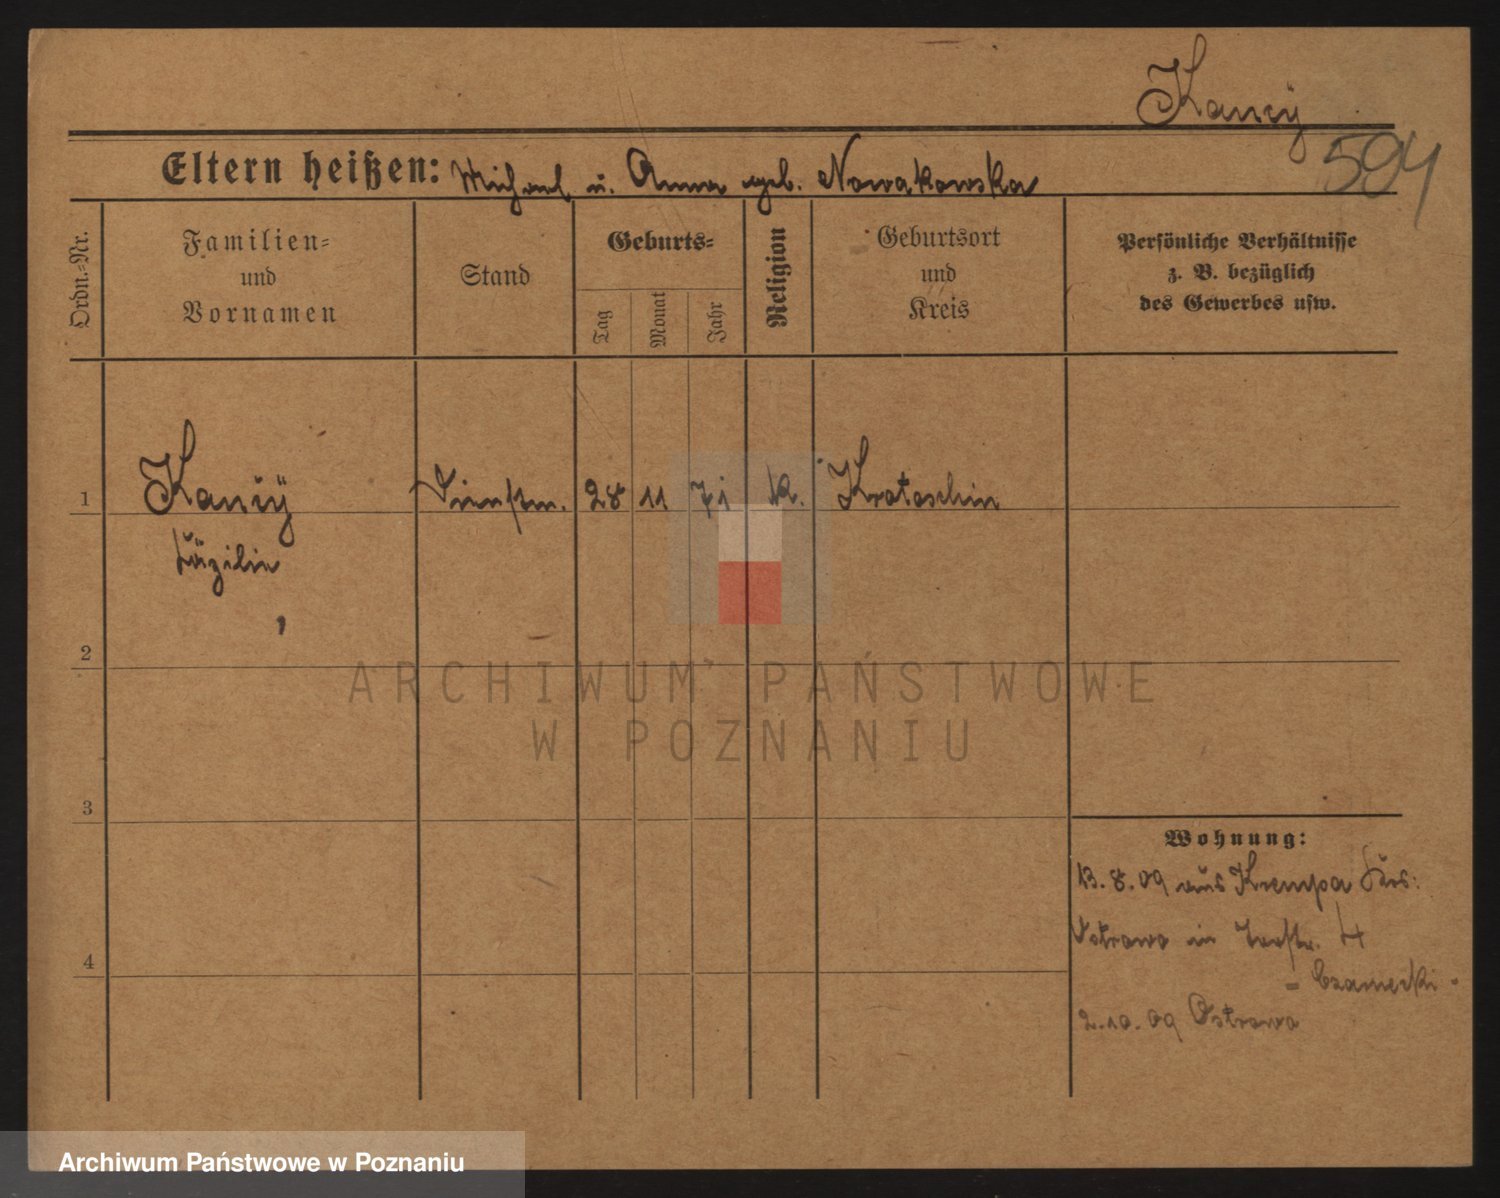 Kanciÿ
594
Eltern heißen: Michael u. Anna geb. Nowakowska
Ordn.-Nr.
Familien- und Vornamen
Stand
Geburts-
Tag
Monat
Jahr
Religion
Geburtsort und Kreis
Persönliche Verhältnisse
z. B. bezüglich
des Gewerbes usw.
1
Kanciÿ
Cäzilie
Dienstm.
28
11
71
k.
Krotoschin
2
3
4
Wohnung:
13.8.09 aus Krempa Krs:
Ostrowo in 4
- Czarnecki -
2.10.09 Ostrowo
ARCHIWUM PAŃSTWOWE
W POZNANIU
Archiwum Państwowe w Poznaniu